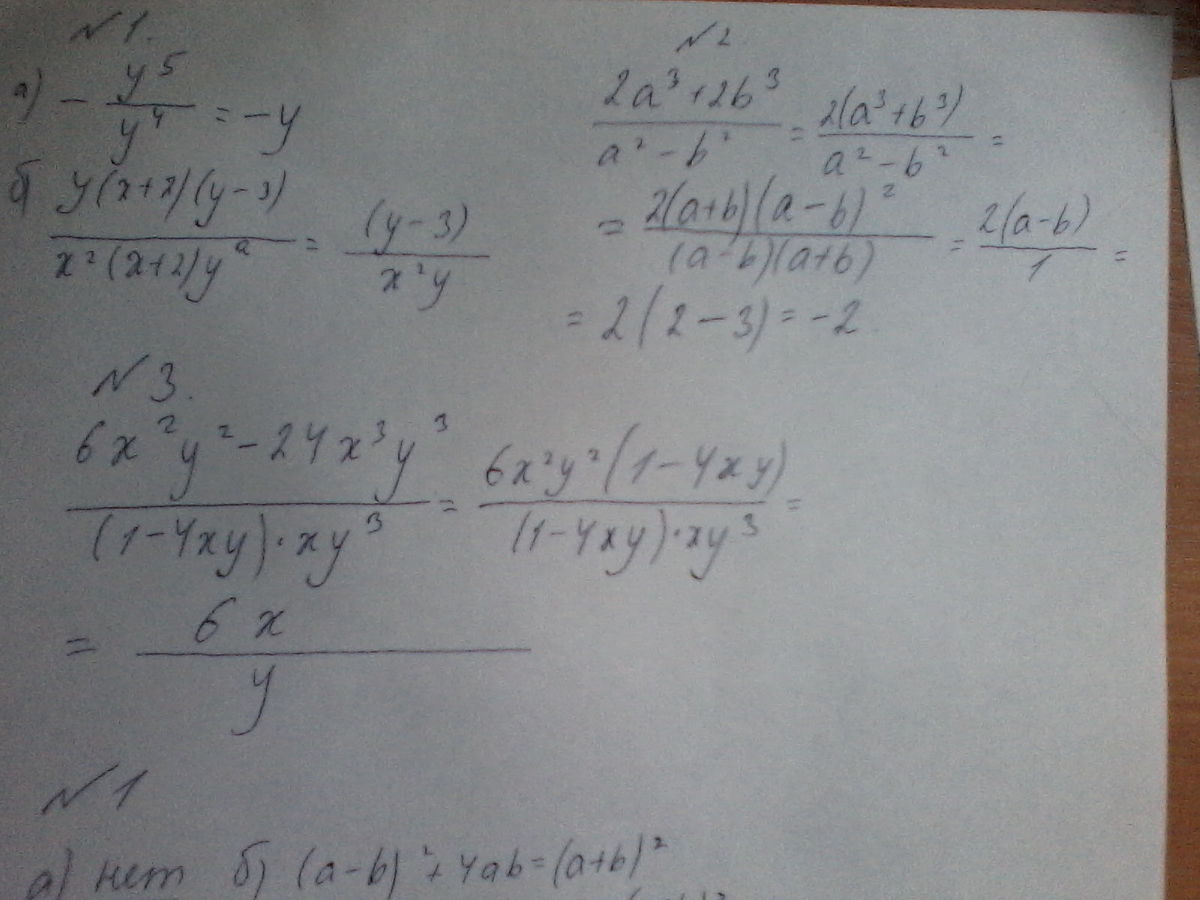 №1.
а) - y⁵/y⁴ = -y
б) y(x+2)(y-3)/x²(x+2)y² = (y-3)/x²y
№2
2a³+2b³/a²-b² = 2(a³+b³)/a²-b² =
= 2(a+b)(a-b)²/(a-b)(a+b) = 2(a-b)/1 =
= 2(2-3) = -2
№3.
6x²y²-24x³y³/(1-4xy)·xy³ = 6x²y²(1-4xy)/(1-4xy)·xy³ =
= 6x/y
№1
а) нет б) (a-b)²+4ab=(a+b)²